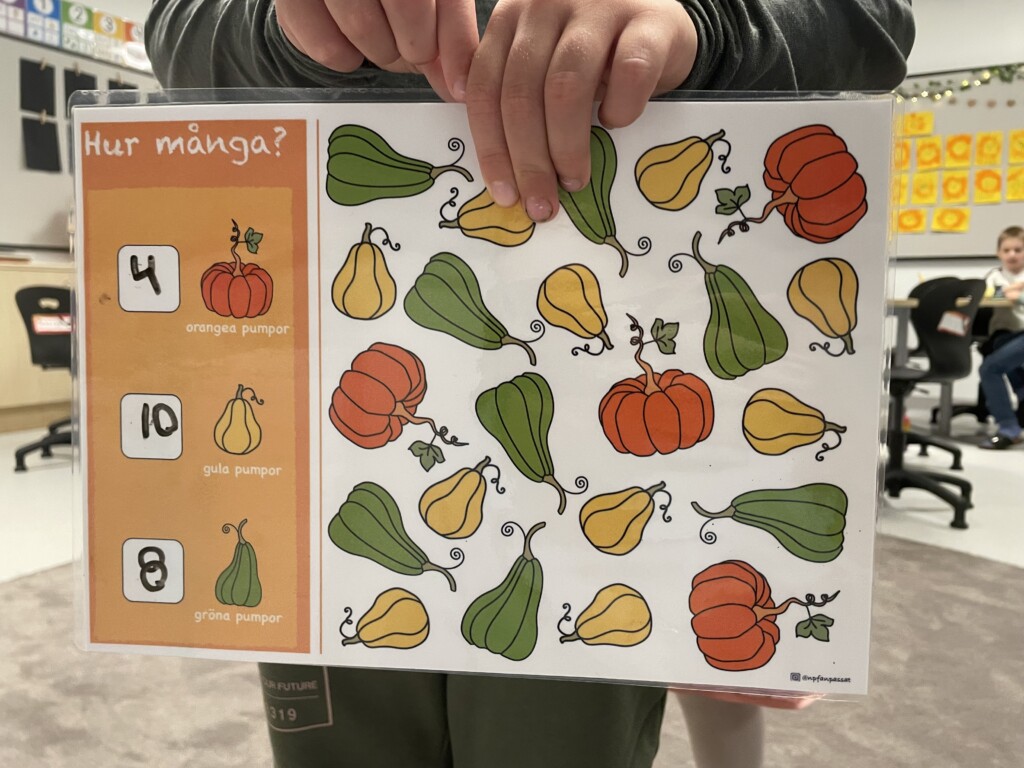 Hur många?
4
orangea pumpor
10
gula pumpor
8
gröna pumpor
@npfanpassat
UR FUTURE
319